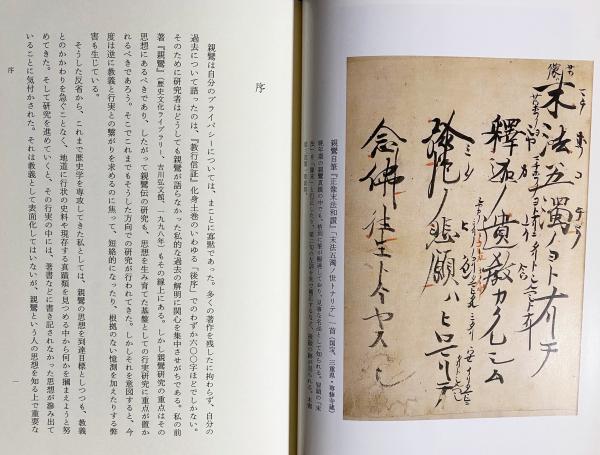 末法五濁ノヨトナリテ
釋迦ノ遺教カクレシム
弥陀ノ悲願ハヒロマリテ
念佛往生トケヤスシ
親鸞自筆『正像末法和讃』「末法五濁ノ世トナリテ」一首（国宝、三重県・専修寺蔵）
序
親鸞は自分のプライバシーについては、まことに寡黙であった。多くの著作を残したに拘わらず、自分の
過去について語ったのは、『教行信証』化身土巻のいわゆる「後序」でのわずか六〇〇字ほどでしかない。
そのために研究者はどうしても親鸞が語らなかった私的な過去の解明に関心を集中させがちである。私の前
著『親鸞』（歴史文化ライブラリー、吉川弘文館、一九九八年）もその線上にある。しかし親鸞研究の重点はその
思想にあるべきであり、したがって親鸞伝の研究も、思想を生み育てた基盤としての行実研究に重点が置か
れるべきであろう。そこでこれまでもそうした方向での研究が行われてきた。しかしそれを意図すると、今
度は逆に教義と行実との繋がりを求めるのに焦って、短絡的になったり、根拠のない憶測を加えたりする弊
害も生じている。
そうした反省から、これまで歴史学を専攻してきた私としては、親鸞の思想を到達目標としつつも、教義
とのかかわりを急ぐことなく、地道に行状の史料や現存する真蹟類を見つめる中から何かを摑まえようと努
めてきた。そして研究を進めていくと、その行実の中には、著書などに書き記されなかった思想が滲み出て
いることに気付かされた。それは教義として表面化してはいないが、親鸞という人の思想を知る上で重要な
序
一